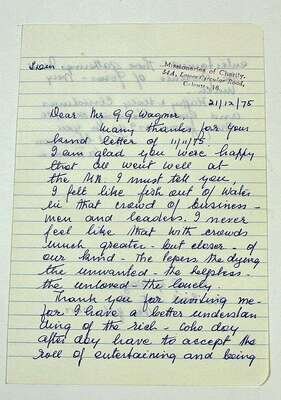 Missionaries of Charity,
54A, Lower Circular Road,
Calcutta 16.
21/12/75
Dear Mr G.G. Wagner,
Many thanks for your
kind letter of 11/11/75
I am glad you were happy
that all went well at
the I must tell you,
I felt like fish out of water
in that crowd of business-
men and leaders. I never
feel like that with crowds
much greater - but closer - of
our kind - the lepers the dying
the unwanted - the helpless -
the unloved - the lonely.
Thank you for inviting me -
for I have a better understan
ding of the rich - who day
after day have to accept the
roll of entertaining and being